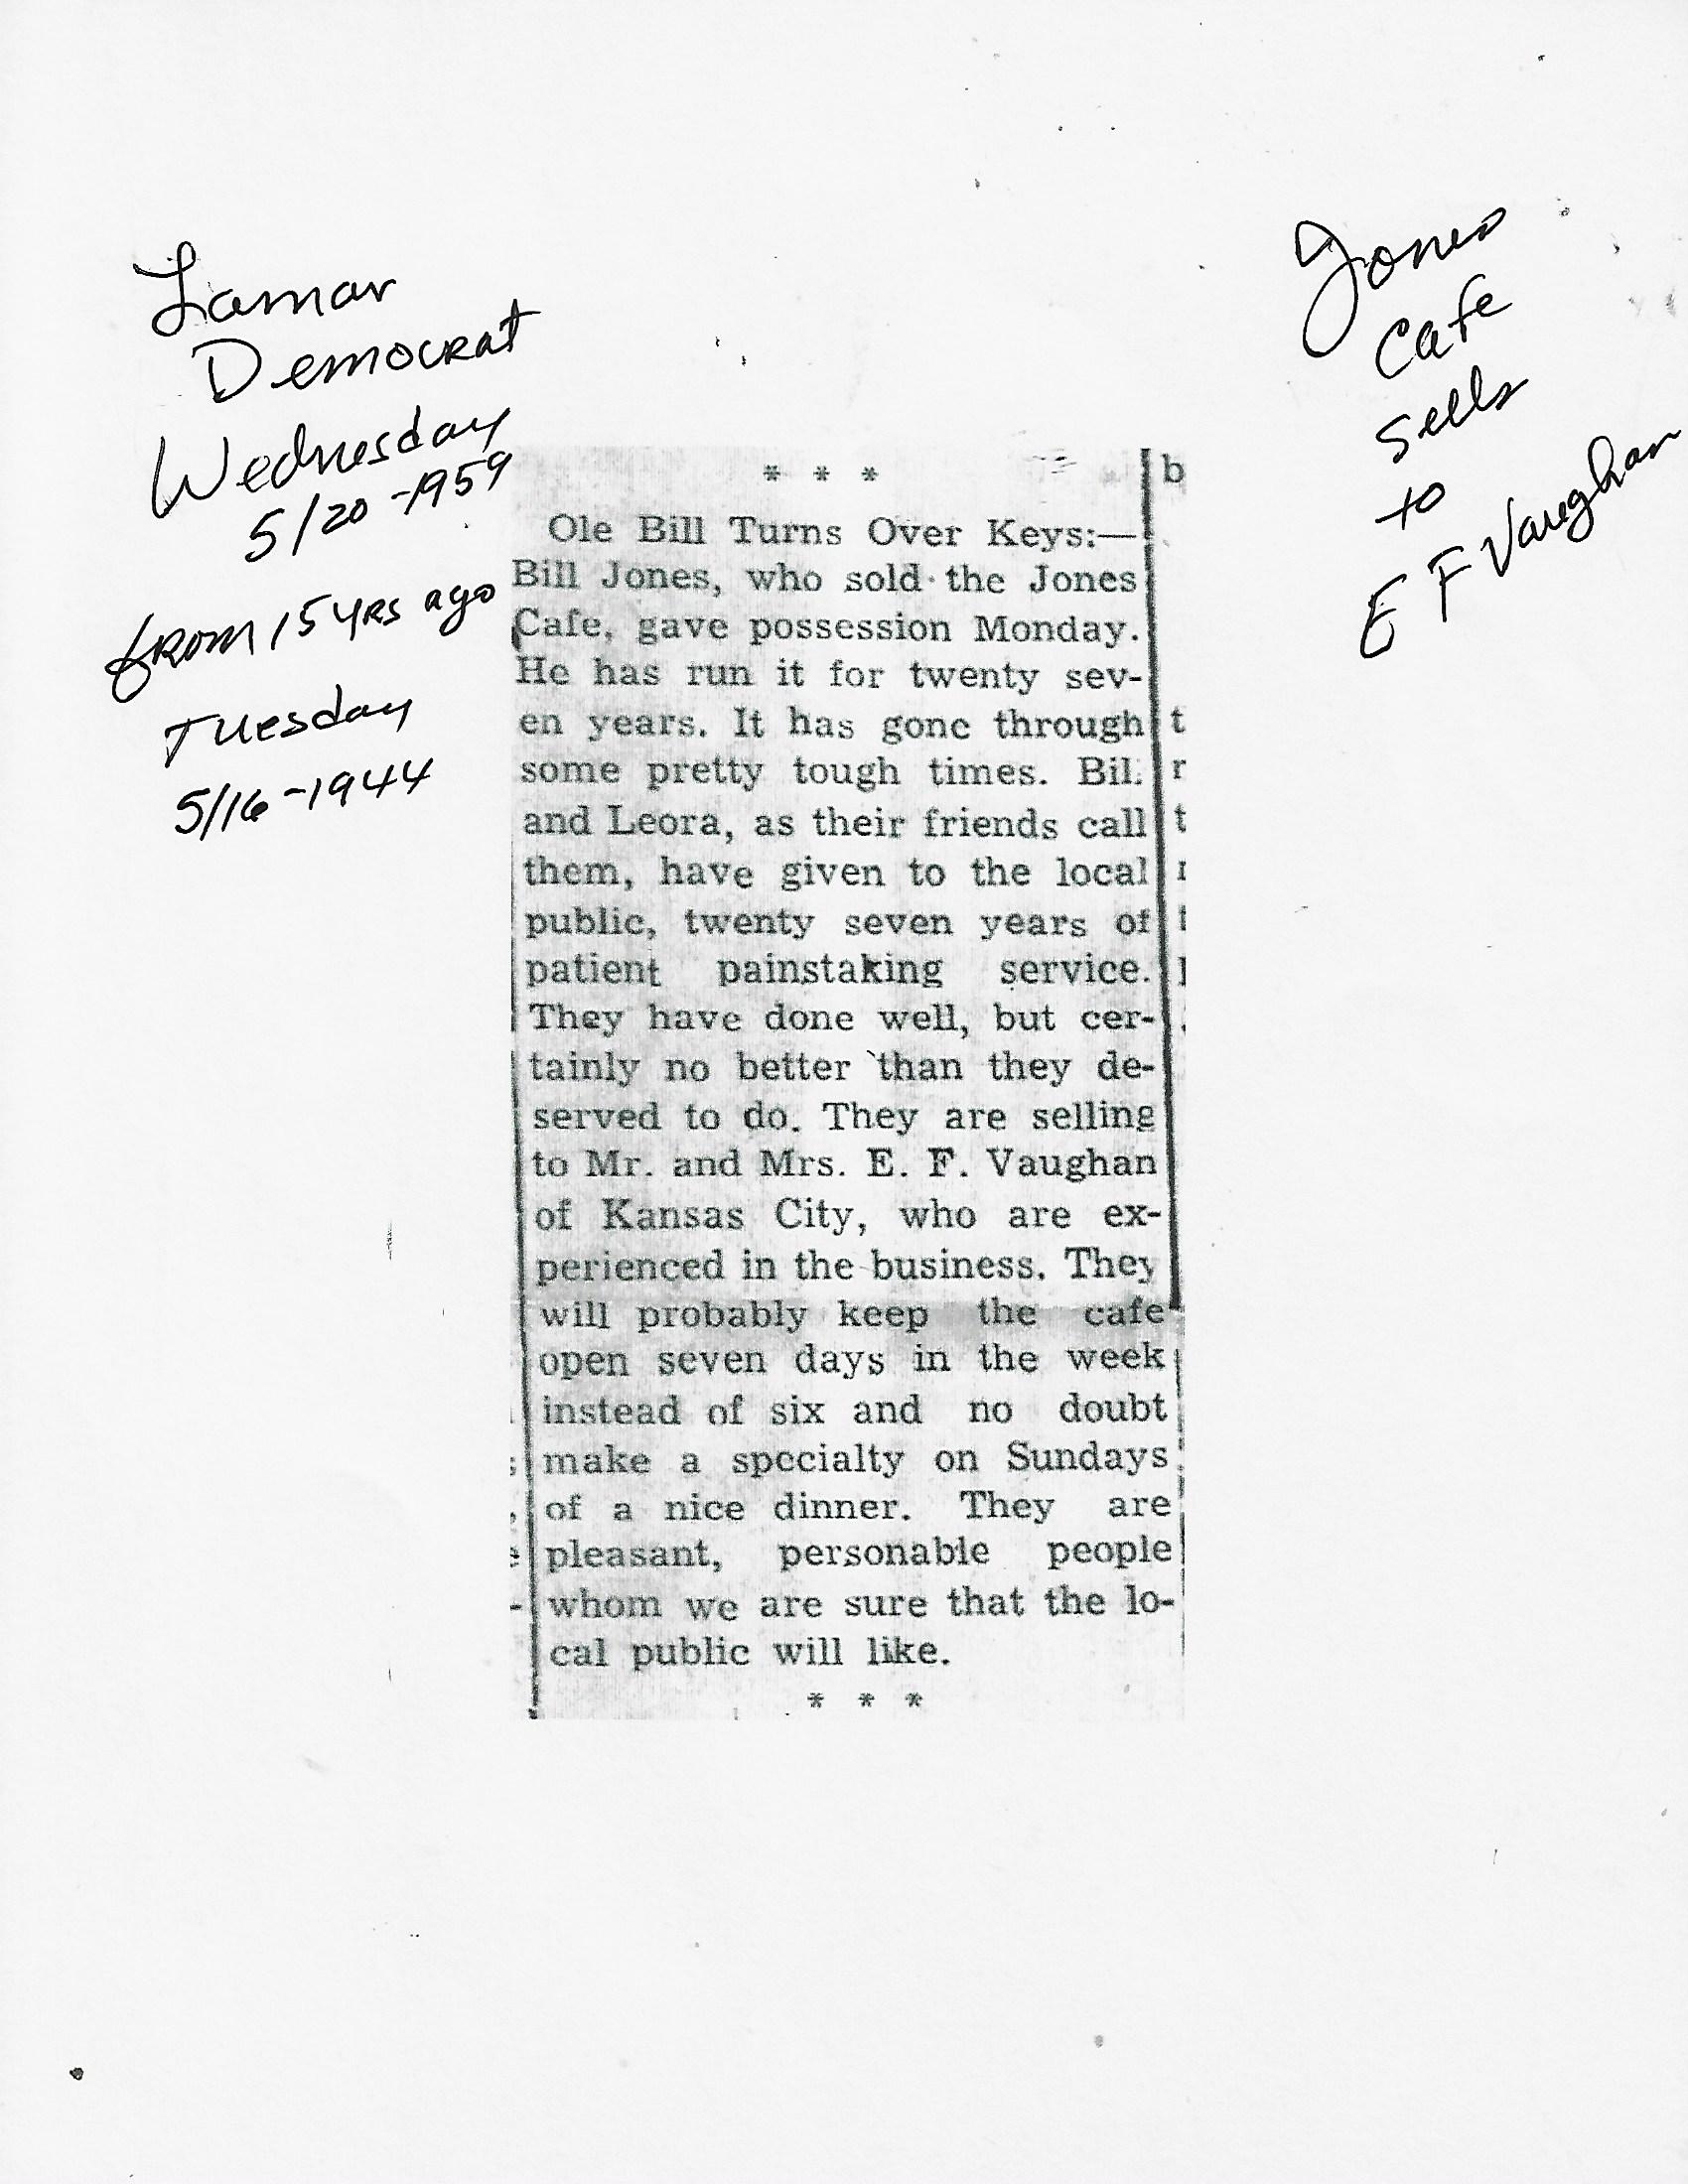 Lamar
Democrat
Wednesday
5/20-1959
from 15 yrs ago
Tuesday
5/16-1944
Jones
Cafe
sells
to
E F Vaughan
* * *
Ole Bill Turns Over Keys:—
Bill Jones, who sold the Jones
Cafe, gave possession Monday.
He has run it for twenty sev-
en years. It has gone through
some pretty tough times. Bil
and Leora, as their friends call
them, have given to the local
public, twenty seven years of
patient painstaking service.
They have done well, but cer-
tainly no better than they de-
served to do. They are selling
to Mr. and Mrs. E. F. Vaughan
of Kansas City, who are ex-
perienced in the business. They
will probably keep the cafe
open seven days in the week
instead of six and no doubt
make a specialty on Sundays
of a nice dinner. They are
pleasant, personable people
whom we are sure that the lo-
cal public will like.
* * *